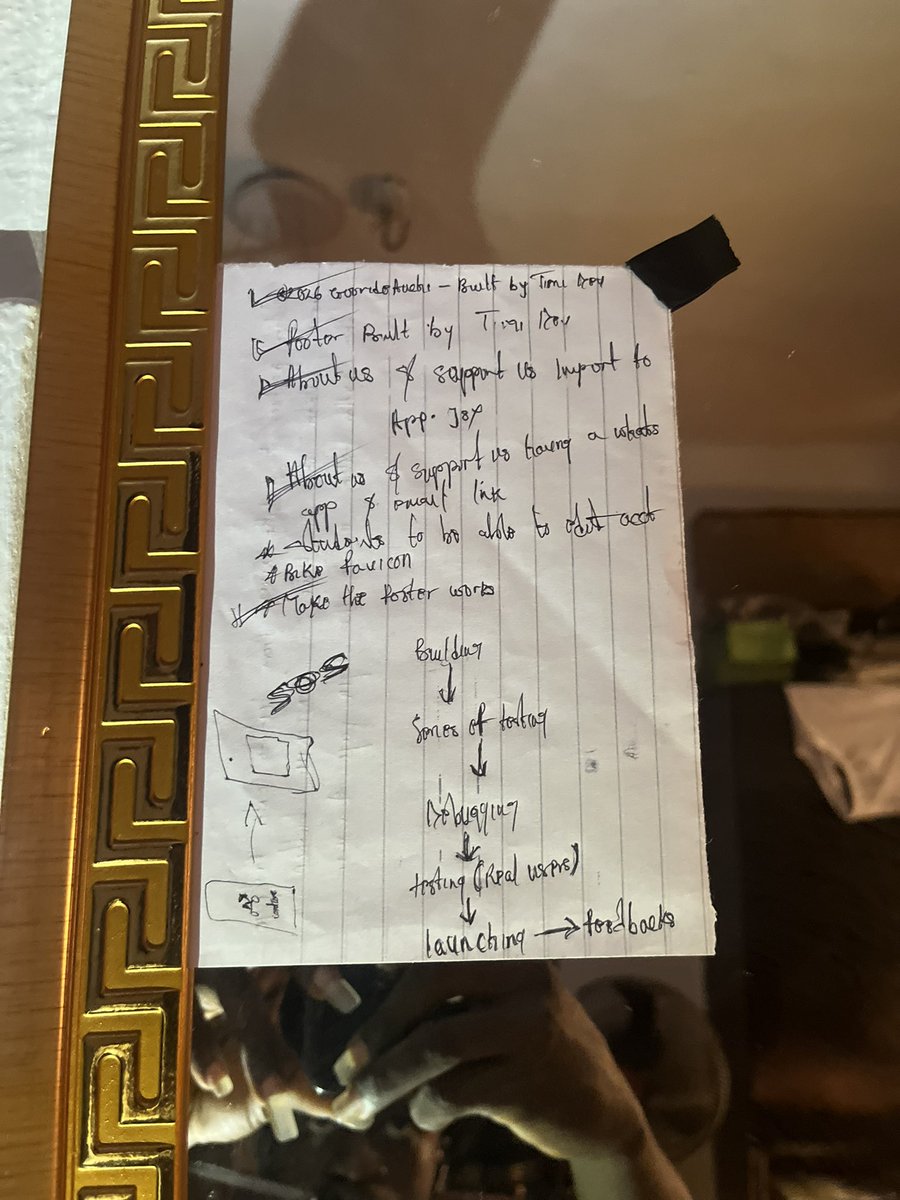 2026 - Built by Timi Dev
Footer Built by Timi Dev
About us & support us import to
App. JSX
About us & support us having a whats
app & email link
Students to be able to edit acct
favicon
Make the footer works
SOS
Building
Series of testing
Debugging
testing (Real users)
launching → feedbacks